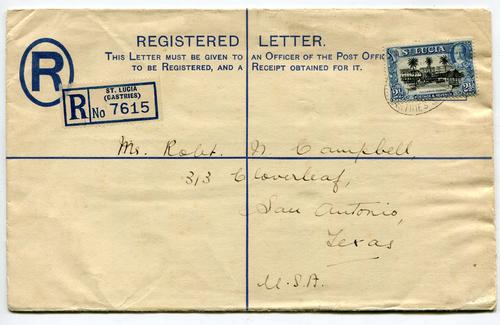 REGISTERED LETTER.
THIS LETTER MUST BE GIVEN TO AN OFFICER OF THE POST OFFIC
TO BE REGISTERED, AND A RECEIPT OBTAINED FOR IT.
R
ST. LUCIA
(CASTRIES)
R No 7615
ST LUCIA
Mr. Robt. N. Campbell,
313 Cloverleaf,
San Antonio,
Texas
U.S.A.